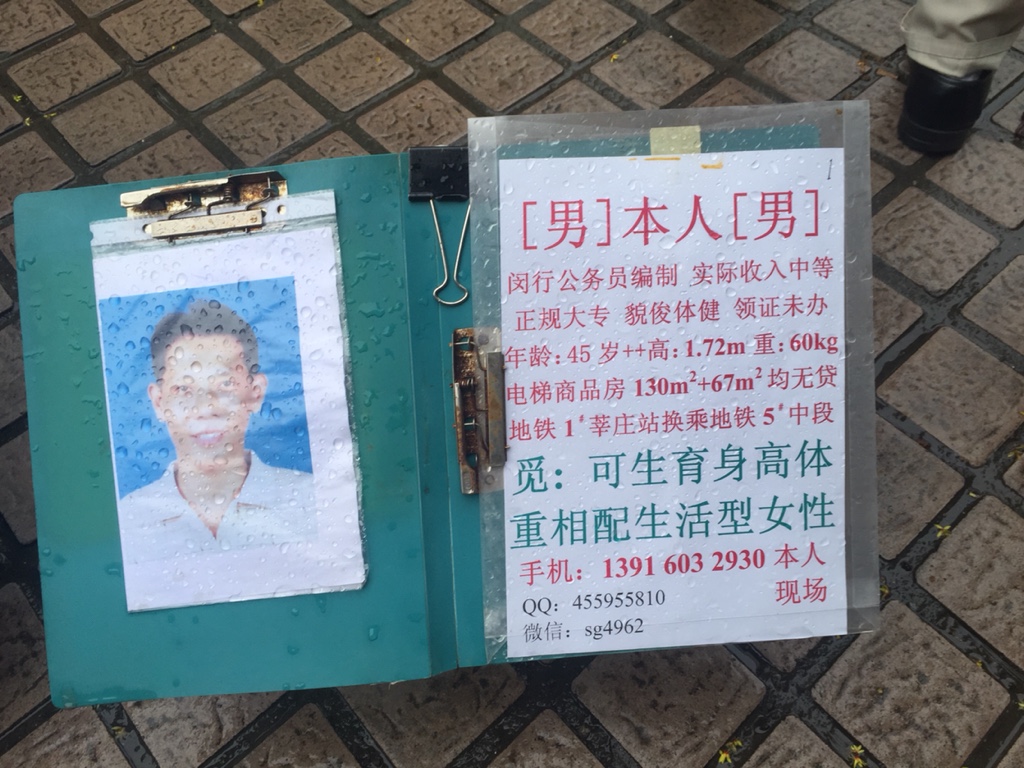 [男]本人[男]
闵行公务员编制 实际收入中等
正规大专 貌俊体健 领证未办
年龄:45岁++高:1.72m 重:60kg
电梯商品房 130m²+67m² 均无贷
地铁1#莘庄站换乘地铁5#中段
觅:可生育身高体
重相配生活型女性
手机:1391 603 2930 本人
现场
QQ:455955810
微信:sg4962